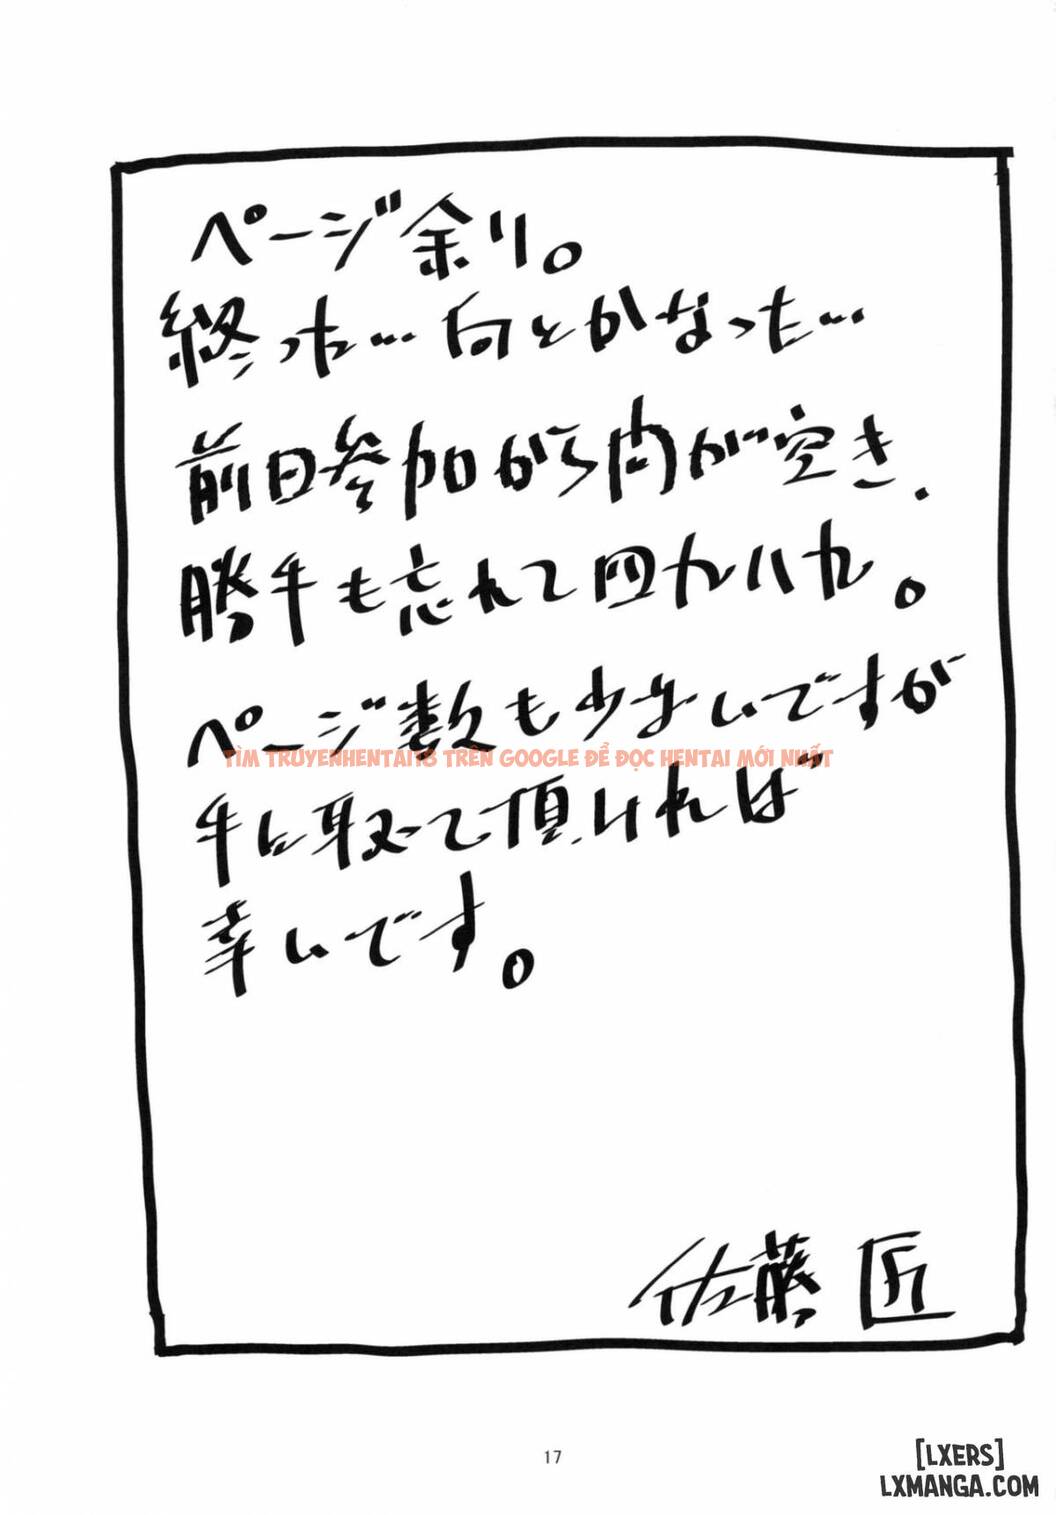 ページ余り。
終った…何とかなった…
前日参加から間が空き、
勝手も忘れて四九八九。
ページ数も少ないですが
TÌM TRUYENHENTAI18 TRÊN GOOGLE ĐỂ ĐỌC HENTAI MỚI NHẤT
手に取って頂ければ
幸いです。
佐藤 匠
17
[LXERS]
LXMANGA.COM